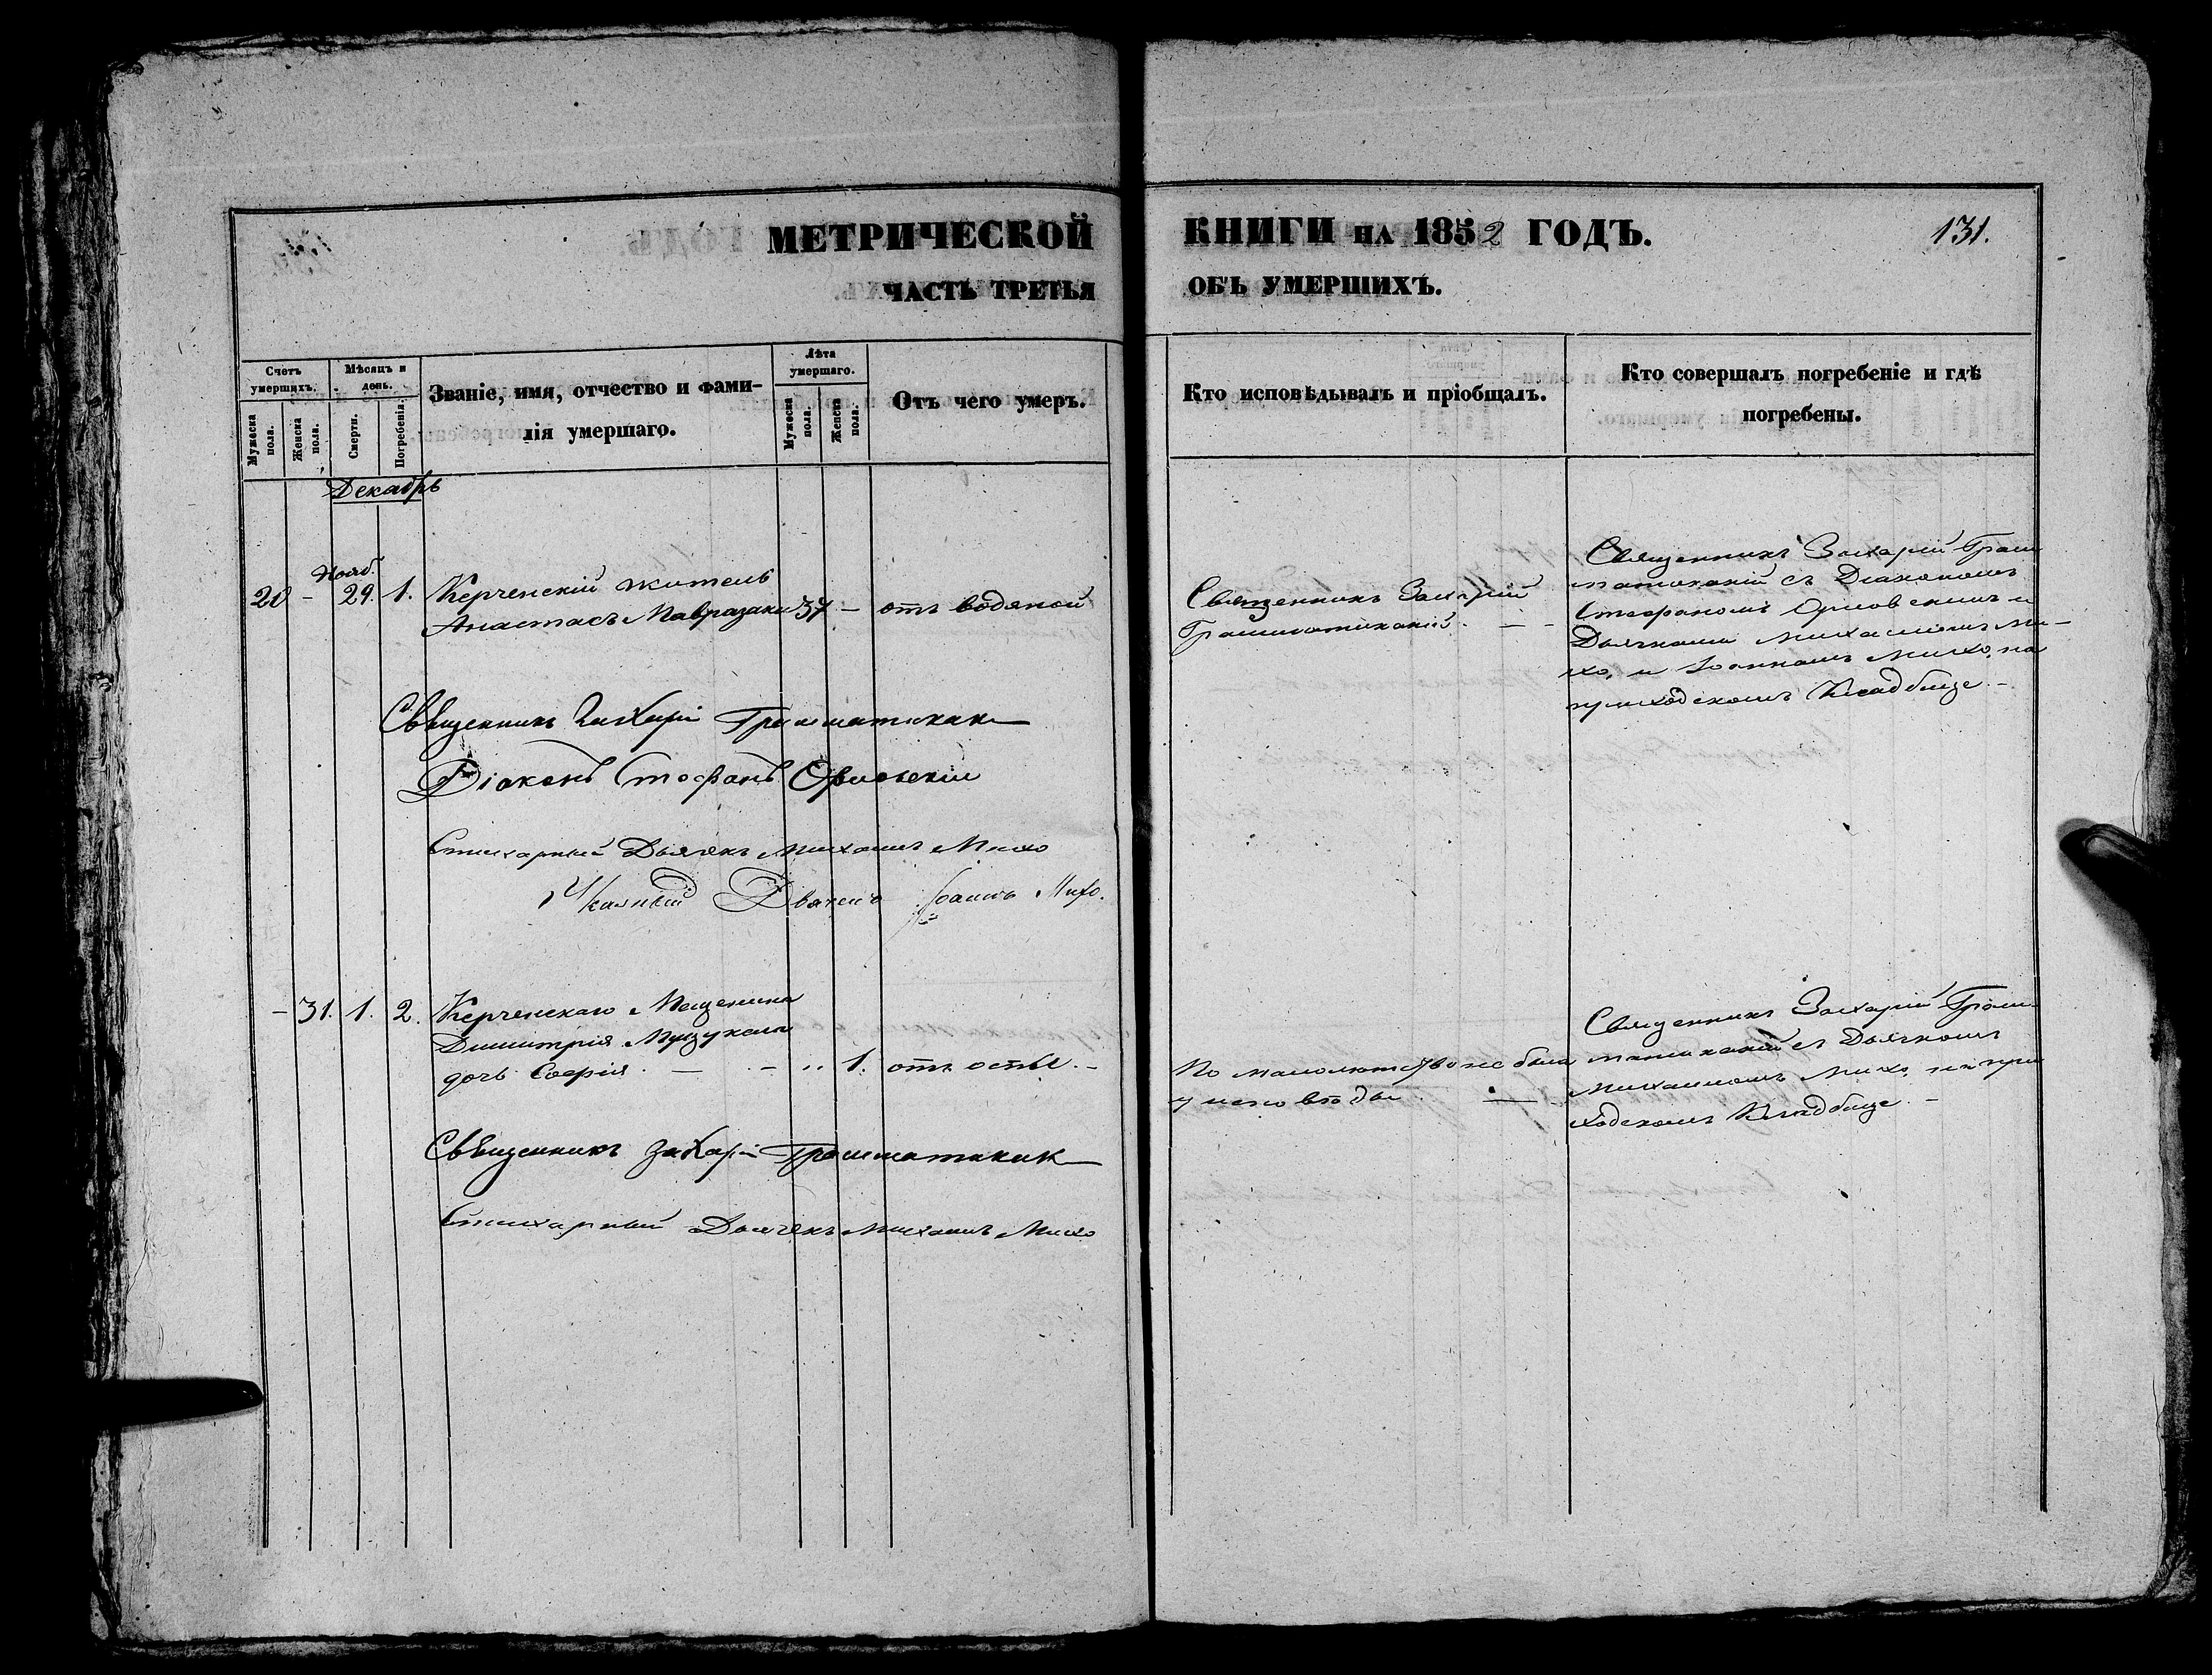 МЕТРИЧЕСКОЙ
ЧАСТЬ ТРЕТЬЯ
Счетъ умершихъ.
Мужеска пола.
Женска пола.
Мѣсяцъ и день.
Смерти.
Погребенія.
Званіе, имя, отчество и фами-
лія умершаго.
Лѣта умершаго.
Мужеска пола.
Женска пола.
Отъ чего умеръ.
Декабрь
Нояб.
20 - 29. 1. Керченскій житель
Анастасъ Мавразаки 37 - отъ водяной
Священникъ Захарій Грамматикаки
Діаконъ Стефанъ Орловскій
Стихарный Дьячекъ Михаилъ Михо
Указный Дьячекъ Іоаннъ Михо.
- 31. 1. 2. Керченскаго Мещенина
Димитрія
дочь Софія. - - „ 1. отъ оспы. -
Священникъ Захарій Грамматикаки
Стихарный Дьячекъ Михаилъ Михо
КНИГИ НА 1852 ГОДЪ.
131.
ОБЪ УМЕРШИХЪ.
Кто исповѣдывалъ и пріобщалъ.
Кто совершалъ погребеніе и гдѣ
погребены.
Священникъ Захарій
Грамматикакій. - -
Священникъ Захарій Грам-
матикакій съ Діакономъ
Стефаномъ Орловскимъ и
Дьячками Михаиломъ Ми-
хо, и Іоанномъ Михо, на
приходскомъ Кладбище. -
По малолетству не была
у исповеди. -
Священникъ Захарій Грам-
матикакій съ Дьячкомъ
Михаиломъ Михо, на при
ходскомъ Кладбище. -